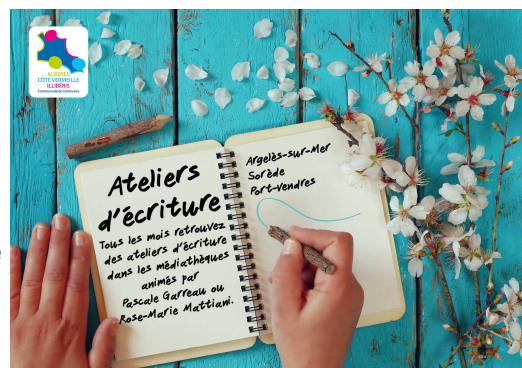 ALBÈRES
CÔTE VERMEILLE
ILLIBÉRIS
Communauté de Communes
Ateliers
d'écriture
Tous les mois retrouvez
des ateliers d'écriture
dans les médiathèques
animés par
Pascale Garreau ou
Rose-Marie Mattiani.
Argelès-sur-Mer
Sorède
Port-Vendres